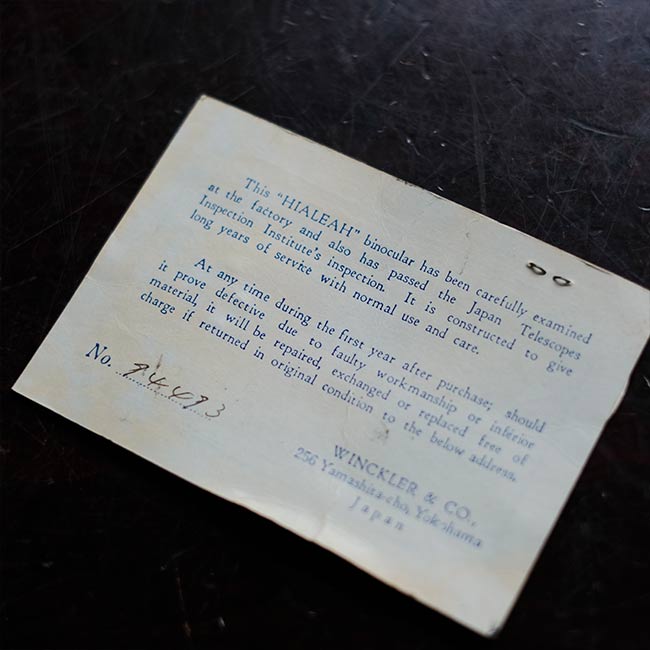 This "HIALEAH" binocular has been carefully examined
at the factory and also has passed the Japan Telescopes
Inspection Institute's inspection. It is constructed to give
long years of service with normal use and care.
At any time during the first year after purchase; should
it prove defective due to faulty workmanship or inferior
material, it will be repaired, exchanged or replaced free of
charge if returned in original condition to the below address.
No. 94493
WINCKLER & CO.,
256 Yamashita-cho, Yokohama
Japan